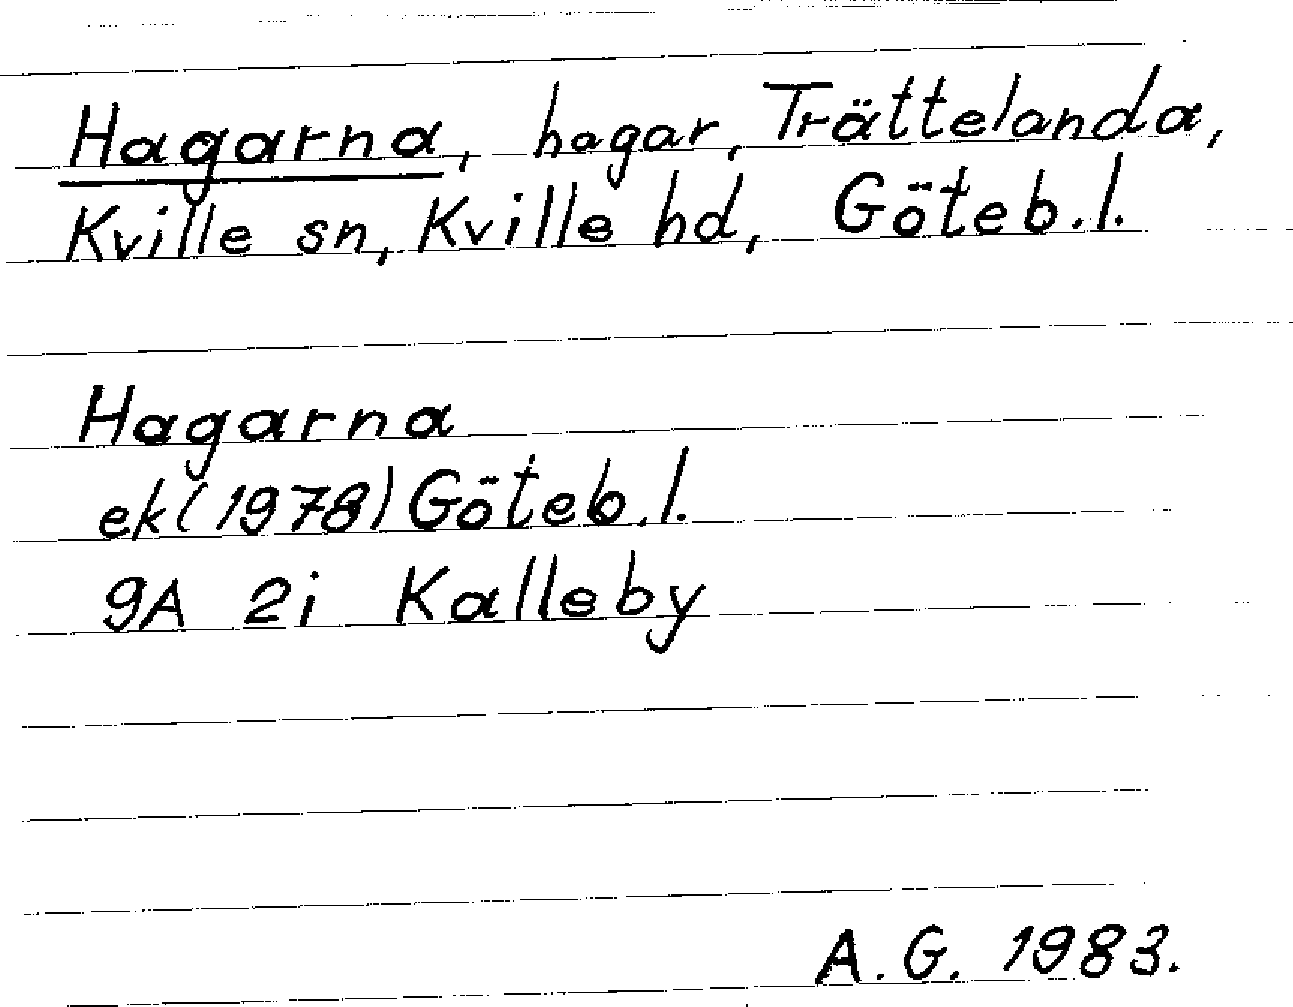 Hagarna, hagar, Trättelanda,
Kville sn, Kville hd, Göteb.l.
Hagarna
ek(1978) Göteb.l.
9A 2i Kalleby
A.G. 1983.